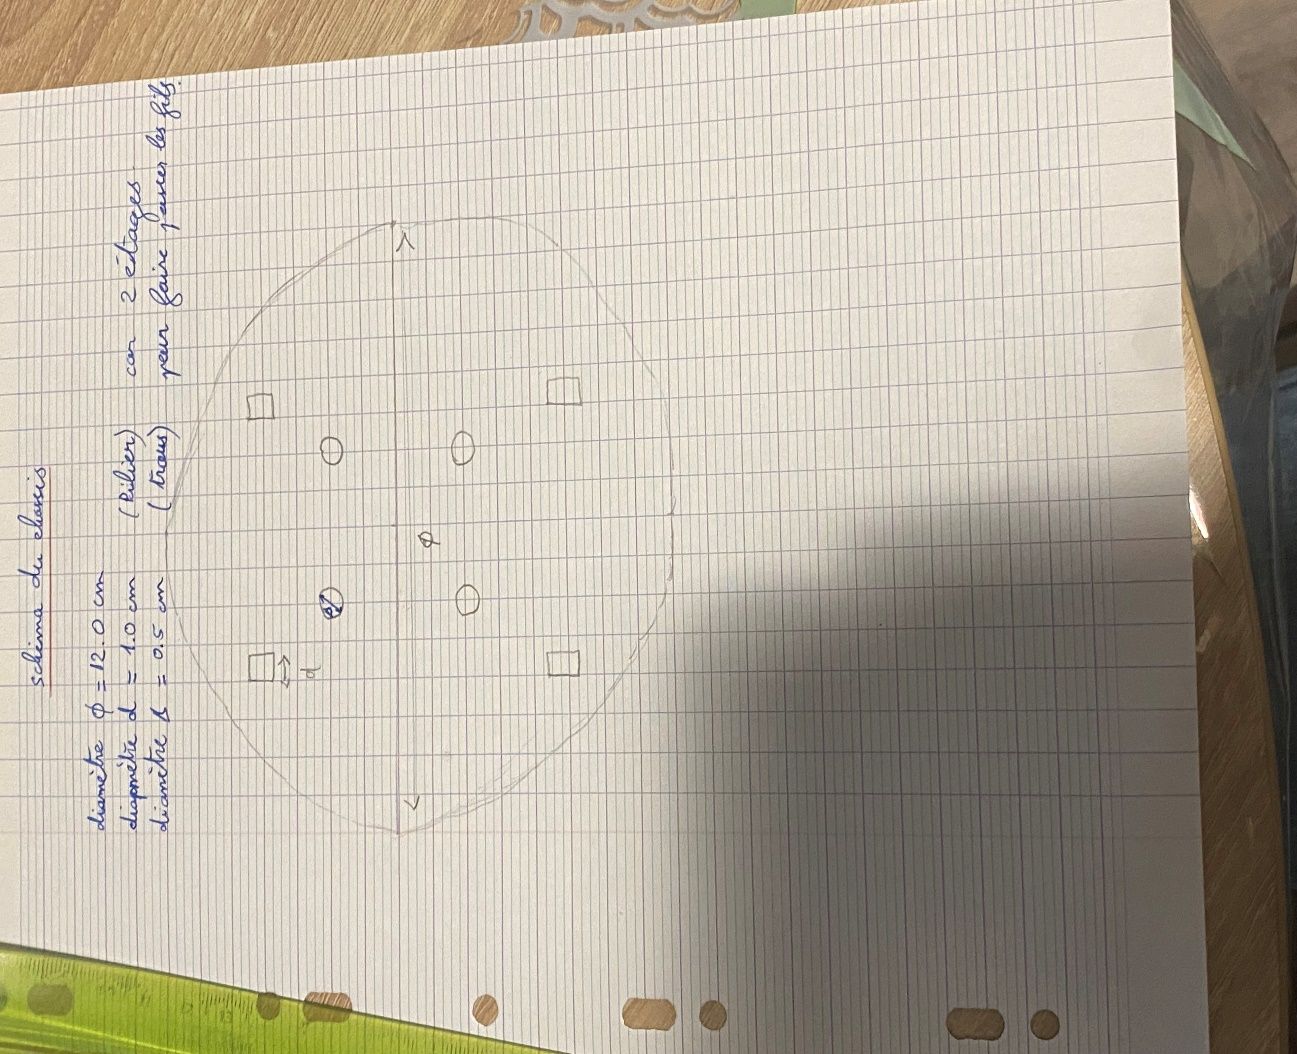 schéma du chassis
diamètre ϕ = 12.0 cm
diapmètre d = 1.0 cm (Pilier) car 2 étages
diamètre = 0.5 cm (trous) pour faire passer les fils.
d
ϕ